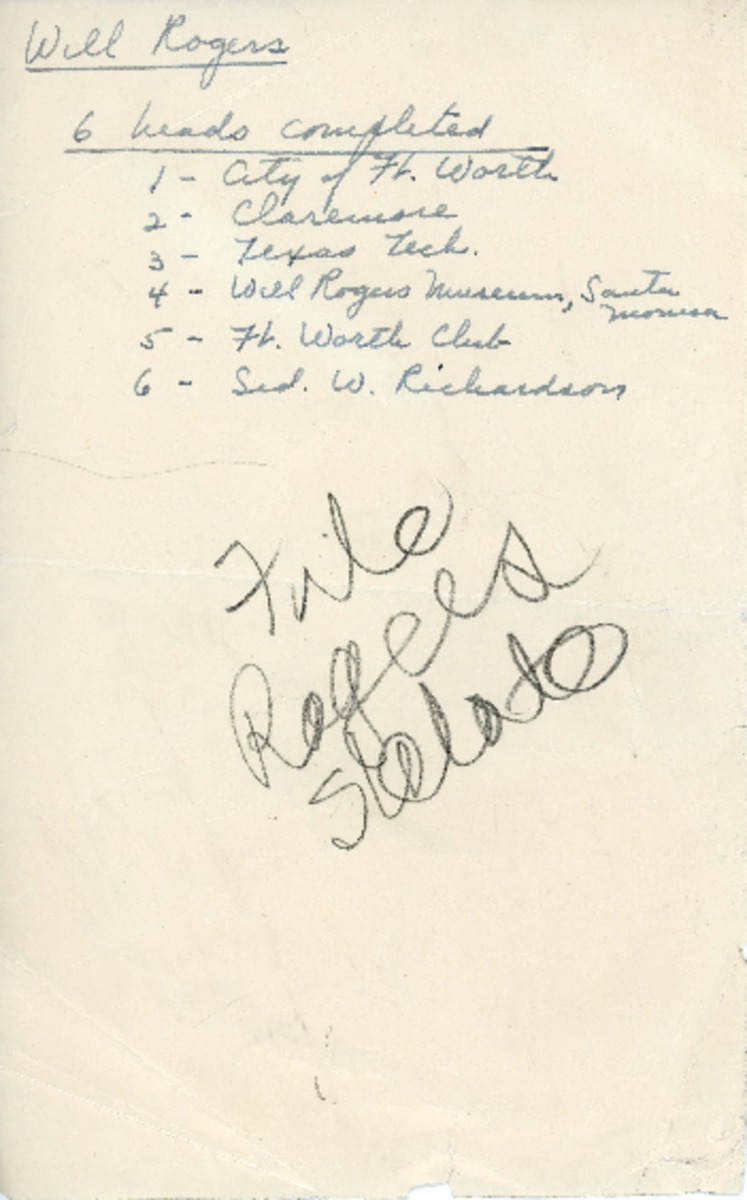 Will Rogers
6 heads completed
1 - City of Ft. Worth
2 - Claremore
3 - Texas Tech.
4 - Will Rogers Museum, Santa
Monica
5 - Ft. Worth Club
6 - Sid. W. Richardson
File
Rogers